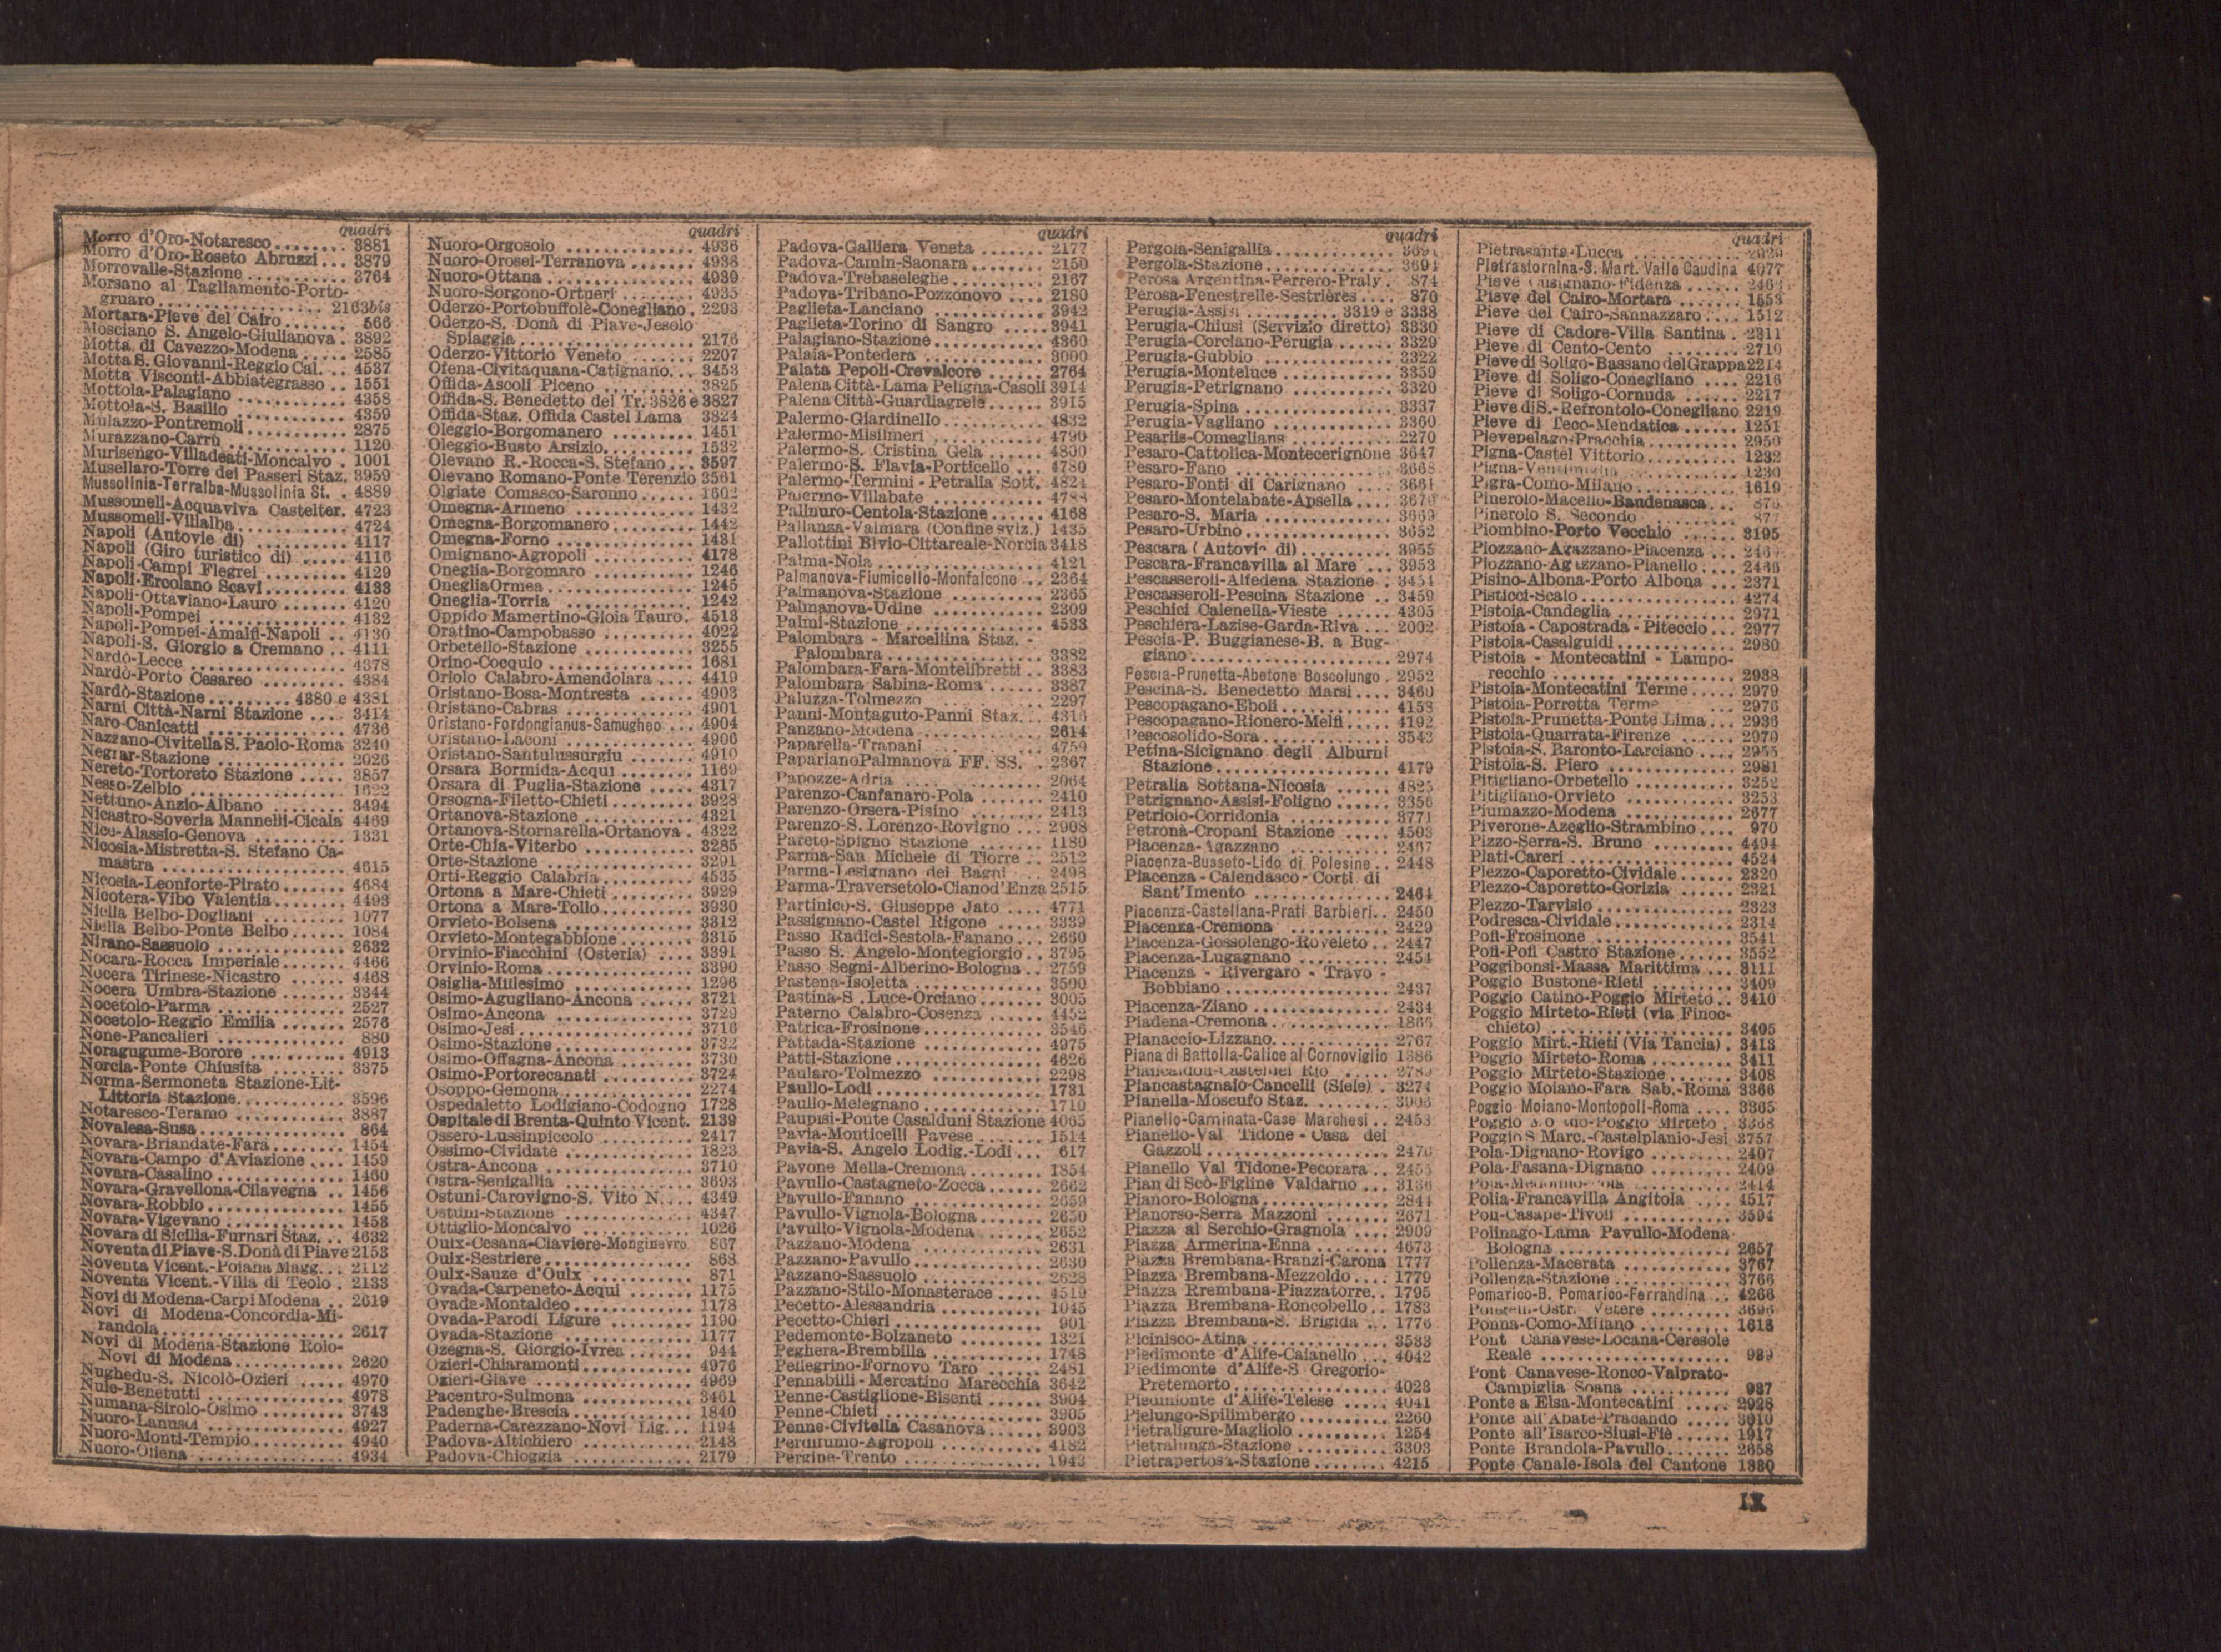 quadri
Morro d'Oro-Notaresco........ 3881
Morro d'Oro-Roseto Abruzzi... 3879
Morrovalle-Stazione ............ 3764
Morsano al Tagliamento-Porto-
gruaro ..................... 2163bis
Mortara-Pieve del Cairo........ 566
Mosciano S. Angelo-Giulianova. 3892
Motta di Cavezzo-Modena ..... 2585
Motta S. Giovanni-Reggio Cal. .. 4537
Motta Visconti-Abbiategrasso .. 1551
Mottola-Palagiano ............. 4358
Mottola-S. Basilio ............. 4359
Mulazzo-Pontremoli............ 2875
Murazzano-Carrù .............. 1120
Murisengo-Villadeati-Moncalvo . 1001
Musellaro-Torre dei Passeri Staz. 3959
Mussolinia-Terralba-Mussolinia St. . 4889
Mussomeli-Acquaviva Castelter. 4723
Mussomeli-Villalba............. 4724
Napoli (Autovie di) ............ 4117
Napoli (Giro turistico di) ...... 4116
Napoli-Campi Flegrei .......... 4129
Napoli-Ercolano Scavi.......... 4133
Napoli-Ottaviano-Lauro ........ 4120
Napoli-Pompei ................ 4132
Napoli-Pompei-Amalfi-Napoli .. 4130
Napoli-S. Giorgio a Cremano .. 4111
Nardò-Lecce .................. 4378
Nardò-Porto Cesareo .......... 4384
Nardò-Stazione.......... 4380 e 4381
Narni Città-Narni Stazione .... 3414
Naro-Canicatti ................ 4736
Nazzano-Civitella S. Paolo-Roma 3240
Negrar-Stazione ............... 2026
Nereto-Tortoreto Stazione ..... 3857
Nesso-Zelbio .................. 1622
Nettuno-Anzio-Albano ......... 3494
Nicastro-Soveria Mannelli-Cicala 4469
Nice-Alassio-Genova ........... 1331
Nicosia-Mistretta-S. Stefano Ca-
mastra ..................... 4615
Nicosia-Leonforte-Pirato ....... 4684
Nicotera-Vibo Valentia......... 4493
Niella Belbo-Dogliani .......... 1077
Niella Belbo-Ponte Belbo....... 1084
Nirano-Sassuolo ............... 2632
Nocara-Rocca Imperiale........ 4466
Nocera Tirinese-Nicastro ...... 4468
Nocera Umbra-Stazione ....... 3344
Nocetolo-Parma ............... 2527
Nocetolo-Reggio Emilia ....... 2576
None-Pancalieri ............... 880
Noragugume-Borore ........... 4913
Norcia-Ponte Chiusita ......... 3375
Norma-Sermoneta Stazione-Lit-
Littoria Stazione............. 3596
Notaresco-Teramo ............. 3887
Novalesa-Susa................. 864
Novara-Briandate-Fara......... 1454
Novara-Campo d'Aviazione .... 1459
Novara-Casalino ............... 1460
Novara-Gravellona-Cilavegna .. 1456
Novara-Robbio................ 1455
Novara-Vigevano .............. 1453
Novara di Sicilia-Furnari Staz. .. 4632
Noventa di Piave-S. Donà di Piave 2153
Noventa Vicent.-Poiana Magg... 2112
Noventa Vicent.-Villa di Teolo . 2133
Novi di Modena-Carpi Modena .. 2619
Novi di Modena-Concordia-Mi-
randola..................... 2617
Novi di Modena-Stazione Rolo-
Novi di Modena............ 2620
Nughedu-S. Nicolò-Ozieri ..... 4970
Nule-Benetutti ................ 4978
Numana-Sirolo-Osimo ......... 3743
Nuoro-Lanusei ................ 4927
Nuoro-Monti-Tempio.......... 4940
Nuoro-Oliena ................. 4934
quadri
Nuoro-Orgosolo .............. 4936
Nuoro-Orosei-Terranova ....... 4938
Nuoro-Ottana ................. 4939
Nuoro-Sorgono-Ortueri ........ 4935
Oderzo-Portobuffolè-Conegliano . 2203
Oderzo-S. Donà di Piave-Jesolo
Spiaggia .................... 2176
Oderzo-Vittorio Veneto ....... 2207
Ofena-Civitaquana-Catignano... 3453
Offida-Ascoli Piceno ........... 3825
Offida-S. Benedetto del Tr. 3826 e 3827
Offida-Staz. Offida Castel Lama 3824
Oleggio-Borgomanero ......... 1451
Oleggio-Busto Arsizio.......... 1532
Olevano R.-Rocca-S. Stefano ... 3597
Olevano Romano-Ponte Terenzio 3561
Olgiate Comasco-Saronno ...... 1602
Omegna-Armeno .............. 1432
Omegna-Borgomanero ......... 1442
Omegna-Forno ................ 1431
Omignano-Agropoli ........... 4178
Oneglia-Borgomaro ........... 1246
OnegliaOrmea................. 1245
Oneglia-Torria ............... 1242
Oppido Mamertino-Gioia Tauro. 4513
Oratino-Campobasso ........... 4022
Orbetello-Stazione ............. 3255
Orino-Cocquio ................. 1681
Oriolo Calabro-Amendolara .... 4419
Oristano-Bosa-Montresta ...... 4903
Oristano-Cabras ............... 4901
Oristano-Fordongianus-Samugheo ... 4904
Oristano-Laconi ............... 4906
Oristano-Santulussurgiu ....... 4910
Orsara Bormida-Acqui ......... 1169
Orsara di Puglia-Stazione ..... 4317
Orsogna-Filetto-Chieti......... 3928
Ortanova-Stazione ............. 4321
Ortanova-Stornarella-Ortanova . 4322
Orte-Chia-Viterbo ............. 3285
Orte-Stazione ................. 3291
Orti-Reggio Calabria .......... 4535
Ortona a Mare-Chieti ......... 3929
Ortona a Mare-Tollo........... 3930
Orvieto-Bolsena ............... 3312
Orvieto-Montegabbione ........ 3315
Orvinio-Fiacchini (Osteria) .... 3391
Orvinio-Roma ................. 3390
Osiglia-Millesimo .............. 1296
Osimo-Agugliano-Ancona ...... 3721
Osimo-Ancona ................ 3729
Osimo-Jesi .................... 3716
Osimo-Stazione ................ 3732
Osimo-Offagna-Ancona ........ 3730
Osimo-Portorecanati ........... 3724
Osoppo-Gemona ............... 2274
Ospedaletto Lodigiano-Codogno 1728
Ospitale di Brenta-Quinto Vicent. 2139
Ossero-Lussinpiccolo .......... 2417
Ossimo-Cividate ............... 1823
Ostra-Ancona ................. 3710
Ostra-Senigallia ............... 3693
Ostuni-Carovigno-S. Vito N.... 4349
Ostuni-Stazione ............... 4347
Ottiglio-Moncalvo ............. 1026
Oulx-Cesana-Claviere-Monginevro 867
Oulx-Sestriere................. 868
Oulx-Sauze d'Oulx ............ 871
Ovada-Carpeneto-Acqui ....... 1175
Ovada-Montaldeo .............. 1178
Ovada-Parodi Ligure .......... 1190
Ovada-Stazione ............... 1177
Ozegna-S. Giorgio-Ivrea ....... 944
Ozieri-Chiaramonti ............ 4976
Ozieri-Giave .................. 4969
Pacentro-Sulmona ............. 3461
Padenghe-Brescia.............. 1840
Paderna-Carezzano-Novi Lig... 1194
Padova-Altichiero ............. 2148
Padova-Chioggia .............. 2179
quadri
Padova-Galliera Veneta ....... 2177
Padova-Camin-Saonara........ 2150
Padova-Trebaseleghe .......... 2167
Padova-Tribano-Pozzonovo .... 2180
Paglieta-Lanciano ............. 3942
Paglieta-Torino di Sangro ..... 3941
Palagiano-Stazione............. 4360
Palaia-Pontedera .............. 3000
Palata Pepoli-Crevalcore ...... 2764
Palena Città-Lama Peligna-Casoli 3914
Palena Città-Guardiagrele...... 3915
Palermo-Giardinello ........... 4832
Palermo-Misilmeri ............. 4790
Palermo-S. Cristina Gela ...... 4800
Palermo-S. Flavia-Porticello ... 4780
Palermo-Termini - Petralia Sott. 4824
Palermo-Villabate ............. 4788
Palinuro-Centola-Stazione ...... 4168
Pallanza-Valmara (Confine sviz.) 1435
Pallottini Bivio-Cittareale-Norcia 3418
Palma-Nola ................... 4121
Palmanova-Fiumicello-Monfalcone .. 2364
Palmanova-Stazione ........... 2365
Palmanova-Udine ............. 2309
Palmi-Stazione ................ 4533
Palombara - Marcellina Staz. -
Palombara .................. 3382
Palombara-Fara-Montelibretti .. 3383
Palombara Sabina-Roma ...... 3387
Paluzza-Tolmezzo ............. 2297
Panni-Montaguto-Panni Staz... 4316
Panzano-Modena .............. 2614
Paparella-Trapani ............. 4759
PaparianoPalmanova FF. SS. . 2367
Papozze-Adria ................ 2064
Parenzo-Canfanaro-Pola ....... 2410
Parenzo-Orsera-Pisino ......... 2413
Parenzo-S. Lorenzo-Rovigno ... 2908
Pareto-Spigno Stazione ........ 1180
Parma-San Michele di Tiorre .. 2512
Parma-Lesignano dei Bagni ... 2498
Parma-Traversetolo-Cianod'Enza 2515
Partinico-S. Giuseppe Jato .... 4771
Passignano-Castel Rigone ...... 3339
Passo Radici-Sestola-Fanano ... 2660
Passo S. Angelo-Montegiorgio .. 3795
Passo Segni-Alberino-Bologna .. 2759
Pastena-Isoletta ............... 3500
Pastina-S .Luce-Orciano....... 3005
Paterno Calabro-Cosenza ...... 4452
Patrica-Frosinone .............. 3546
Pattada-Stazione .............. 4975
Patti-Stazione ................. 4626
Paularo-Tolmezzo ............. 2298
Paullo-Lodi ................... 1731
Paullo-Melegnano ............. 1710
Paupisi-Ponte Casalduni Stazione 4065
Pavia-Monticelli Pavese ....... 1514
Pavia-S. Angelo Lodig.-Lodi ... 617
Pavone Mella-Cremona ........ 1854
Pavullo-Castagneto-Zocca...... 2662
Pavullo-Fanano ............... 2659
Pavullo-Vignola-Bologna ....... 2650
Pavullo-Vignola-Modena ....... 2652
Pazzano-Modena .............. 2631
Pazzano-Pavullo .............. 2630
Pazzano-Sassuolo .............. 2628
Pazzano-Stilo-Monasterace ..... 4519
Pecetto-Alessandria ............ 1045
Pecetto-Chieri ................. 901
Pedemonte-Bolzaneto .......... 1321
Peghera-Brembilla ............. 1748
Pellegrino-Fornovo Taro ....... 2481
Pennabilli-Mercatino Marecchia 3642
Penne-Castiglione-Bisenti ...... 3904
Penne-Chieti .................. 3905
Penne-Civitella Casanova....... 3903
Perdifumo-Agropoli ........... 4182
Pergine-Trento ................ 1943
quadri
Pergola-Senigallia..............
Pergola-Stazione............... 3691
Perosa Argentina-Perrero-Praly . 874
Perosa-Fenestrelle-Sestrières.... 870
Perugia-Assisi .......... 3319 e 3338
Perugia-Chiusi (Servizio diretto) 3330
Perugia-Corciano-Perugia ...... 3329
Perugia-Gubbio ............... 3322
Perugia-Monteluce ............ 3359
Perugia-Petrignano ............ 3320
Perugia-Spina ................. 3337
Perugia-Vagliano .............. 3360
Pesariis-Comeglians ........... 2270
Pesaro-Cattolica-Montecerignone 3647
Pesaro-Fano .................. 3668
Pesaro-Fonti di Carignano .... 3661
Pesaro-Montelabate-Apsella.... 3670
Pesaro-S. Maria ............... 3669
Pesaro-Urbino................. 3652
Pescara (Autovie di).......... 3955
Pescara-Francavilla al Mare ... 3953
Pescasseroli-Alfedena Stazione . 3454
Pescasseroli-Pescina Stazione .. 3459
Peschici Calenella-Vieste ...... 4305
Peschiera-Lazise-Garda-Riva ... 2002
Pescia-P. Buggianese-B. a Bug-
giano....................... 2974
Pescia-Prunetta-Abetone Boscolungo . 2952
Pescina-S. Benedetto Marsi .... 3460
Pescopagano-Eboli............. 4153
Pescopagano-Rionero-Melfi..... 4192
Pescosolido-Sora............... 3543
Petina-Sicignano degli Alburni
Stazione..................... 4179
Petralia Sottana-Nicosia ...... 4825
Petrignano-Assisi-Foligno ...... 3356
Petriolo-Corridonia ............ 3771
Petronà-Cropani Stazione ..... 4503
Piacenza-Agazzano ............ 2437
Piacenza-Busseto-Lido di Polesine.. 2448
Piacenza-Calendasco-Corti di
Sant'Imento ................ 2464
Piacenza-Castellana-Prati Barbieri.. 2450
Piacenza-Cremona ............. 2429
Piacenza-Gossolengo-Roveleto .. 2447
Piacenza-Lugagnano ........... 2454
Piacenza - Rivergaro - Travo -
Bobbiano ................... 2437
Piacenza-Ziano ................ 2434
Piadena-Cremona.............. 1866
Pianaccio-Lizzano.............. 2767
Piana di Battolla-Calice al Cornoviglio 1386
Piancaldoli-Castel del Rio
Piancastagnaio-Cancelli (Siele) . 3274
Pianella-Moscufo Staz. ........ 3906
Pianello-Caminata-Case Marchesi .. 2453
Pianello-Val Tidone-Casa dei
Gazzoli..................... 2476
Pianello Val Tidone-Pecorara .. 2455
Pian di Scò-Figline Valdarno ... 3136
Pianoro-Bologna............... 2844
Pianorso-Serra Mazzoni ....... 2671
Piazza al Serchio-Gragnola .... 2909
Piazza Armerina-Enna ........ 4673
Piazza Brembana-Branzi-Carona 1777
Piazza Brembana-Mezzoldo .... 1779
Piazza Brembana-Piazzatorre.. 1795
Piazza Brembana-Roncobello .. 1783
Piazza Brembana-S. Brigida ... 1776
Picinisco-Atina ................ 3533
Piedimonte d'Alife-Caianello ... 4042
Piedimonte d'Alife-S Gregorio-
Pretemorto.................. 4023
Piedimonte d'Alife-Telese ..... 4041
Pielungo-Spilimbergo .......... 2260
Pietraligure-Magliolo ........... 1254
Pietralunga-Stazione ........... 3303
Pietrapertosa-Stazione ......... 4215
quadri
Pietrasanta-Lucca ............
Pietrastornina-S. Mart. Valle Caudina 4077
Pieve Cusignano-Fidenza ......
Pieve del Cairo-Mortara ....... 1553
Pieve del Cairo-Sannazzaro .... 1512
Pieve di Cadore-Villa Santina . 2311
Pieve di Cento-Cento ........ 2710
Pieve di Soligo-Bassano del Grappa 2214
Pieve di Soligo-Conegliano .... 2216
Pieve di Soligo-Cornuda ...... 2217
Pieve di S.-Refrontolo-Conegliano 2219
Pieve di Teco-Mendatica ...... 1251
Pievepelago-Pracchia........... 2950
Pigna-Castel Vittorio........... 1232
Pigna-Ventimiglia ............. 1230
Pigra-Como-Milano ............ 1619
Pinerolo-Macello-Bandenasca...
Pinerolo S. Secondo
Piombino-Porto Vecchio ....... 3195
Piozzano-Agazzano-Piacenza ...
Piozzano-Agazzano-Pianello ....
Pisino-Albona-Porto Albona ... 2371
Pisticci-Scalo .................. 4274
Pistoia-Candeglia .............. 2971
Pistoia-Capostrada-Piteccio ... 2977
Pistoia-Casalguidi .............. 2980
Pistoia - Montecatini - Lampo-
recchio ..................... 2938
Pistoia-Montecatini Terme..... 2979
Pistoia-Porretta Terme ... 2976
Pistoia-Prunetta-Ponte Lima ... 2936
Pistoia-Quarrata-Firenze ...... 2970
Pistoia-S. Baronto-Larciano .... 2955
Pistoia-S. Piero ............... 2981
Pitigliano-Orbetello ............ 3252
Pitigliano-Orvieto ............. 3253
Piumazzo-Modena ............. 2677
Piverone-Azeglio-Strambino .... 970
Pizzo-Serra-S. Bruno ......... 4494
Platì-Careri ................... 4524
Plezzo-Caporetto-Cividale ..... 2320
Plezzo-Caporetto-Gorizia ...... 2321
Plezzo-Tarvisio ................ 2323
Podresca-Cividale.............. 2314
Pofi-Frosinone ................ 3541
Pofi-Pofi Castro Stazione ...... 3552
Poggibonsi-Massa Marittima ... 3111
Poggio Bustone-Rieti ......... 3409
Poggio Catino-Poggio Mirteto .. 3410
Poggio Mirteto-Rieti (via Finoc-
chieto) ..................... 3405
Poggio Mirt.-Rieti (Via Tancia) . 3413
Poggio Mirteto-Roma .......... 3411
Poggio Mirteto-Stazione........ 3408
Poggio Moiano-Fara Sab.-Roma 3366
Poggio Moiano-Montopoli-Roma .... 3365
Poggio -Poggio Mirteto . 3368
Poggio S Marc.-Castelplanio-Jesi 3757
Pola-Dignano-Rovigo .......... 2407
Pola-Fasana-Dignano .......... 2409
Pola-Medolino-Pola ............ 2414
Polia-Francavilla Angitola ..... 4517
Poli-Casape-Tivoli ............. 3594
Polinago-Lama Pavullo-Modena-
Bologna .................... 2657
Pollenza-Macerata ............. 3767
Pollenza-Stazione .............. 3766
Pomarico-B. Pomarico-Ferrandina .. 4266
Vetere ........ 3696
Ponna-Como-Milano ........... 1618
Pont Canavese-Locana-Ceresole
Reale ...................... 939
Pont Canavese-Ronco-Valprato-
Campiglia Soana ........... 937
Ponte a Elsa-Montecatini ...... 2928
Ponte all'Abate-Pracando ..... 3010
Ponte all'Isarco-Siusi-Fiè ....... 1917
Ponte Brandola-Pavullo........ 2658
Ponte Canale-Isola del Cantone 1330
IX